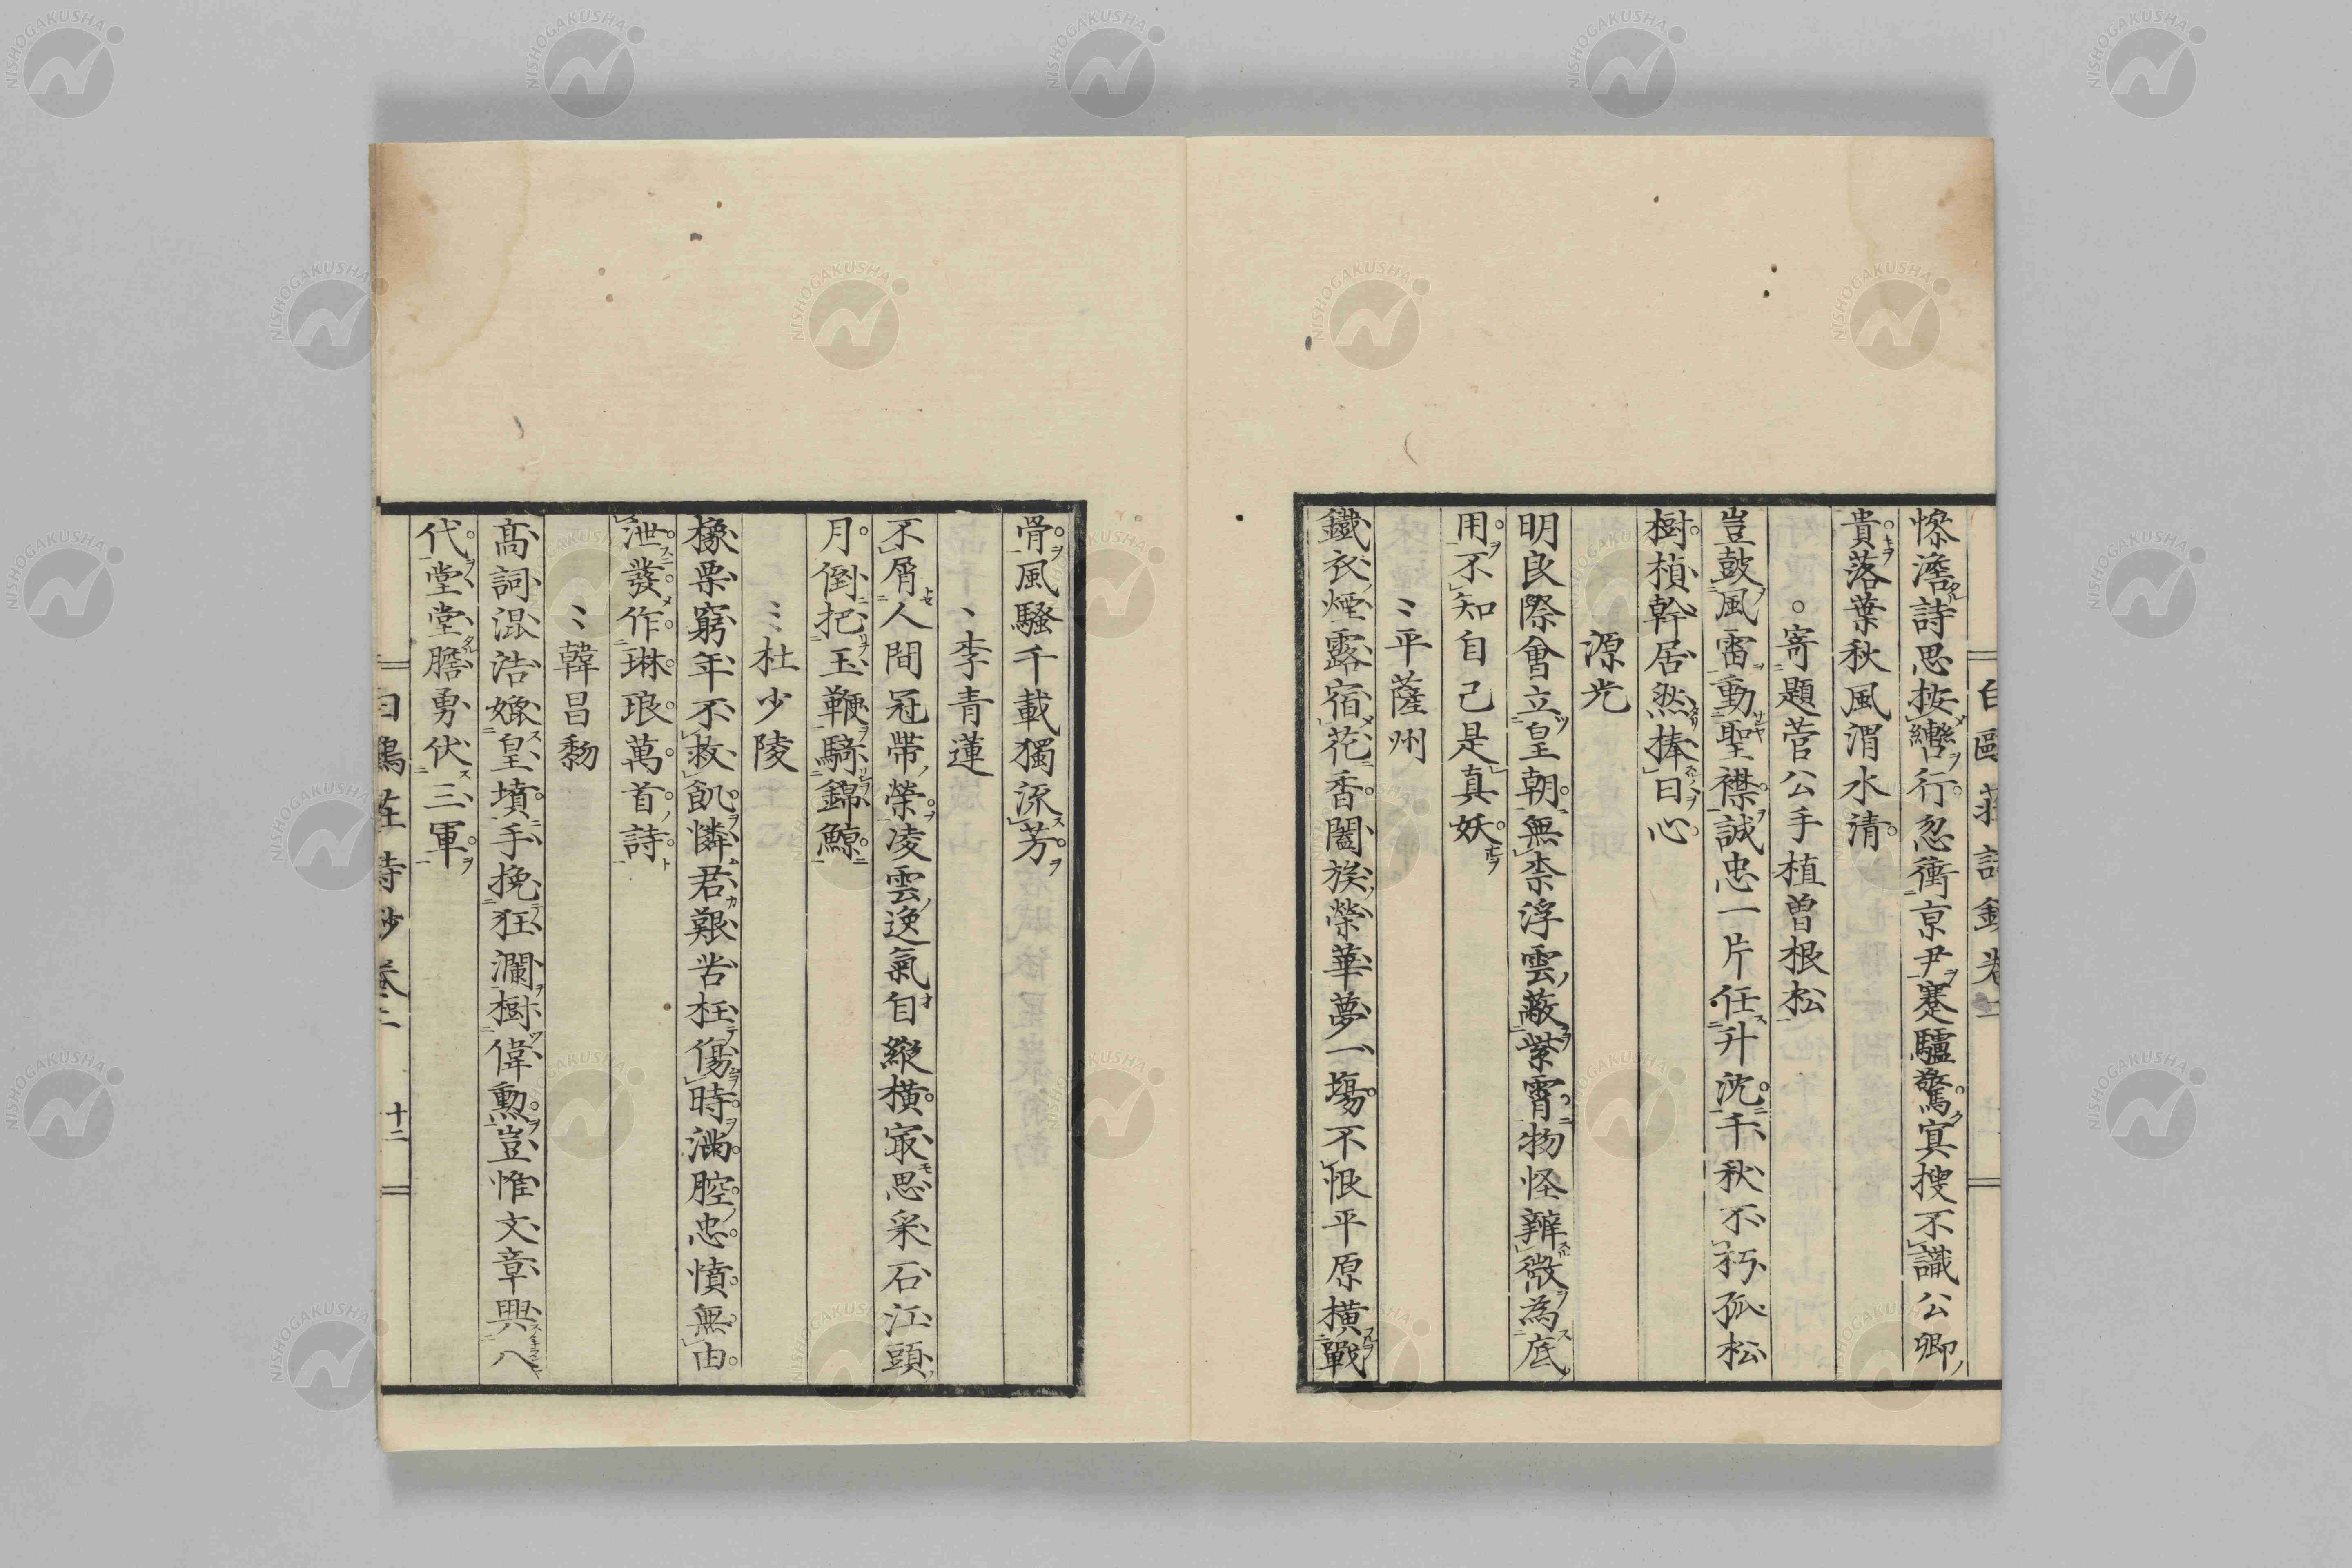 慘澹詩思按轡行忽衝京尹蹇驢驚冥搜不識公卿
貴落葉秋風渭水清
寄題菅公手植曽根松
豈鼓風雷動聖襟誠忠一片任升沈千秋不朽孤松
樹楨幹居然捧日心
源光
明良際會立皇朝無柰浮雲蔽紫霄物怪辨微為底
用不知自己是真妖
〻平薩州
鐵衣煙露宿花香闔族榮華夢一場不恨平原橫戰
骨風騷千載獨流芳
〻李青蓮
不屑人間冠帶榮凌雲逸氣自縱橫㝡思采石江頭
月倒把玉鞭騎錦鯨
〻杜少陵
橡栗窮年不救飢憐君艱苦枉傷時滿腔忠憤無由
泄發作琳琅萬首詩
〻韓昌黎
高詞混浩嫓皇墳手挽狂瀾樹偉勲豈惟文章興八
代堂堂膽勇伏三軍
白鷗莊詩鈔卷二
十二
NISHOGAKUSHA